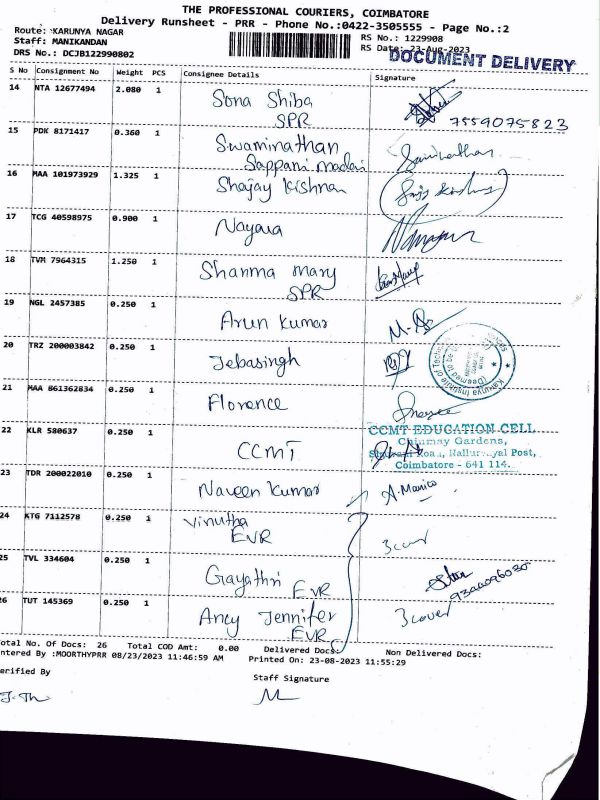 THE PROFESSIONAL COURIERS, COIMBATORE
Delivery Runsheet - PRR - Phone No.:0422-3505555 - Page No.:2
Route: KARUNYA NAGAR
RS No.: 1229908
Staff: MANIKANDAN
RS Date: 23-Aug-2023
DRS No.: DCJB122990802
DOCUMENT DELIVERY
S No Consignment No Weight PCS Consignee Details Signature
14 NTA 12677494 2.080 1 Sona Shiba
SPR 7559075823
15 PDK 8171417 0.360 1 Swaminathan
Sappani madai
16 MAA 101973929 1.325 1 Shajay Krishnan
17 TCG 40598975 0.900 1 Nayara
18 TVM 7964315 1.250 1 Shanma mary
SPR
19 NGL 2457385 0.250 1 Arun kumar
20 TRZ 200003842 0.250 1 Jebasingh
Karunya Institute of Technology
21 MAA 861362834 0.250 1 Florence
22 KLR 580637 0.250 1 CCMT
CCMT EDUCATION CELL
Chinmay Gardens,
Coimbatore - 641 114.
23 TDR 200022010 0.250 1 Naveen Kumar
24 KTG 7112578 0.250 1 Vinutha
EVR 3 cover
25 TVL 334604 0.250 1 Gayathri EVR
26 TUT 145369 0.250 1 Ancy Jennifer 3 cover
EVR
otal No. Of Docs: 26 Total COD Amt: 0.00 Delivered Docs: Non Delivered Docs:
ntered By :MOORTHYPRR 08/23/2023 11:46:59 AM Printed On: 23-08-2023 11:55:29
erified By Staff Signature